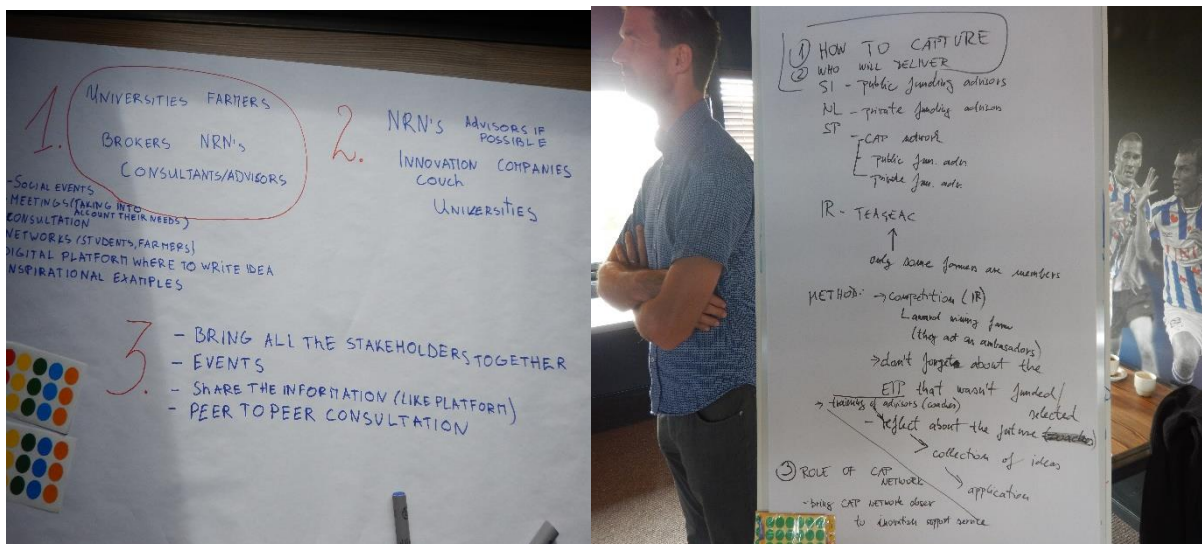 1.
UNIVERSITIES FARMERS
BROKERS NRN's
CONSULTANTS/ADVISORS
-SOCIAL EVENTS
-MEETINGS (TAKING INTO
ACCOUNT THEIR NEEDS)
CONSULTATION
NETWORKS (STUDENTS, FARMERS)
DIGITAL PLATFORM WHERE TO WRITE IDEA
INSPIRATIONAL EXAMPLES
2.
NRN's ADVISORS IF
POSSIBLE
INNOVATION COMPANIES
COUCH
UNIVERSITIES
3.
- BRING ALL THE STAKEHOLDERS TOGETHER
- EVENTS
- SHARE THE INFORMATION (LIKE PLATFORM)
- PEER TO PEER CONSULTATION
1 HOW TO CAPTURE
2 WHO WILL DELIVER
SI - public funding advisors
NL - private funding advisors
SP - CAP network
public fun. adv.
private fun. adv.
IR - TEAGEAC
only some farmers are members
METHOD: → competition (IR)
award winning farm
(they act as ambasadors)
→ don't forget about the
EIP that wasn't funded/
selected
→ training of advisors (coaches)
- reflect about the future
→ collection of ideas
→ application
3 ROLE OF CAP
NETWORK
- bring CAP NETWORK closer
to innovation support service